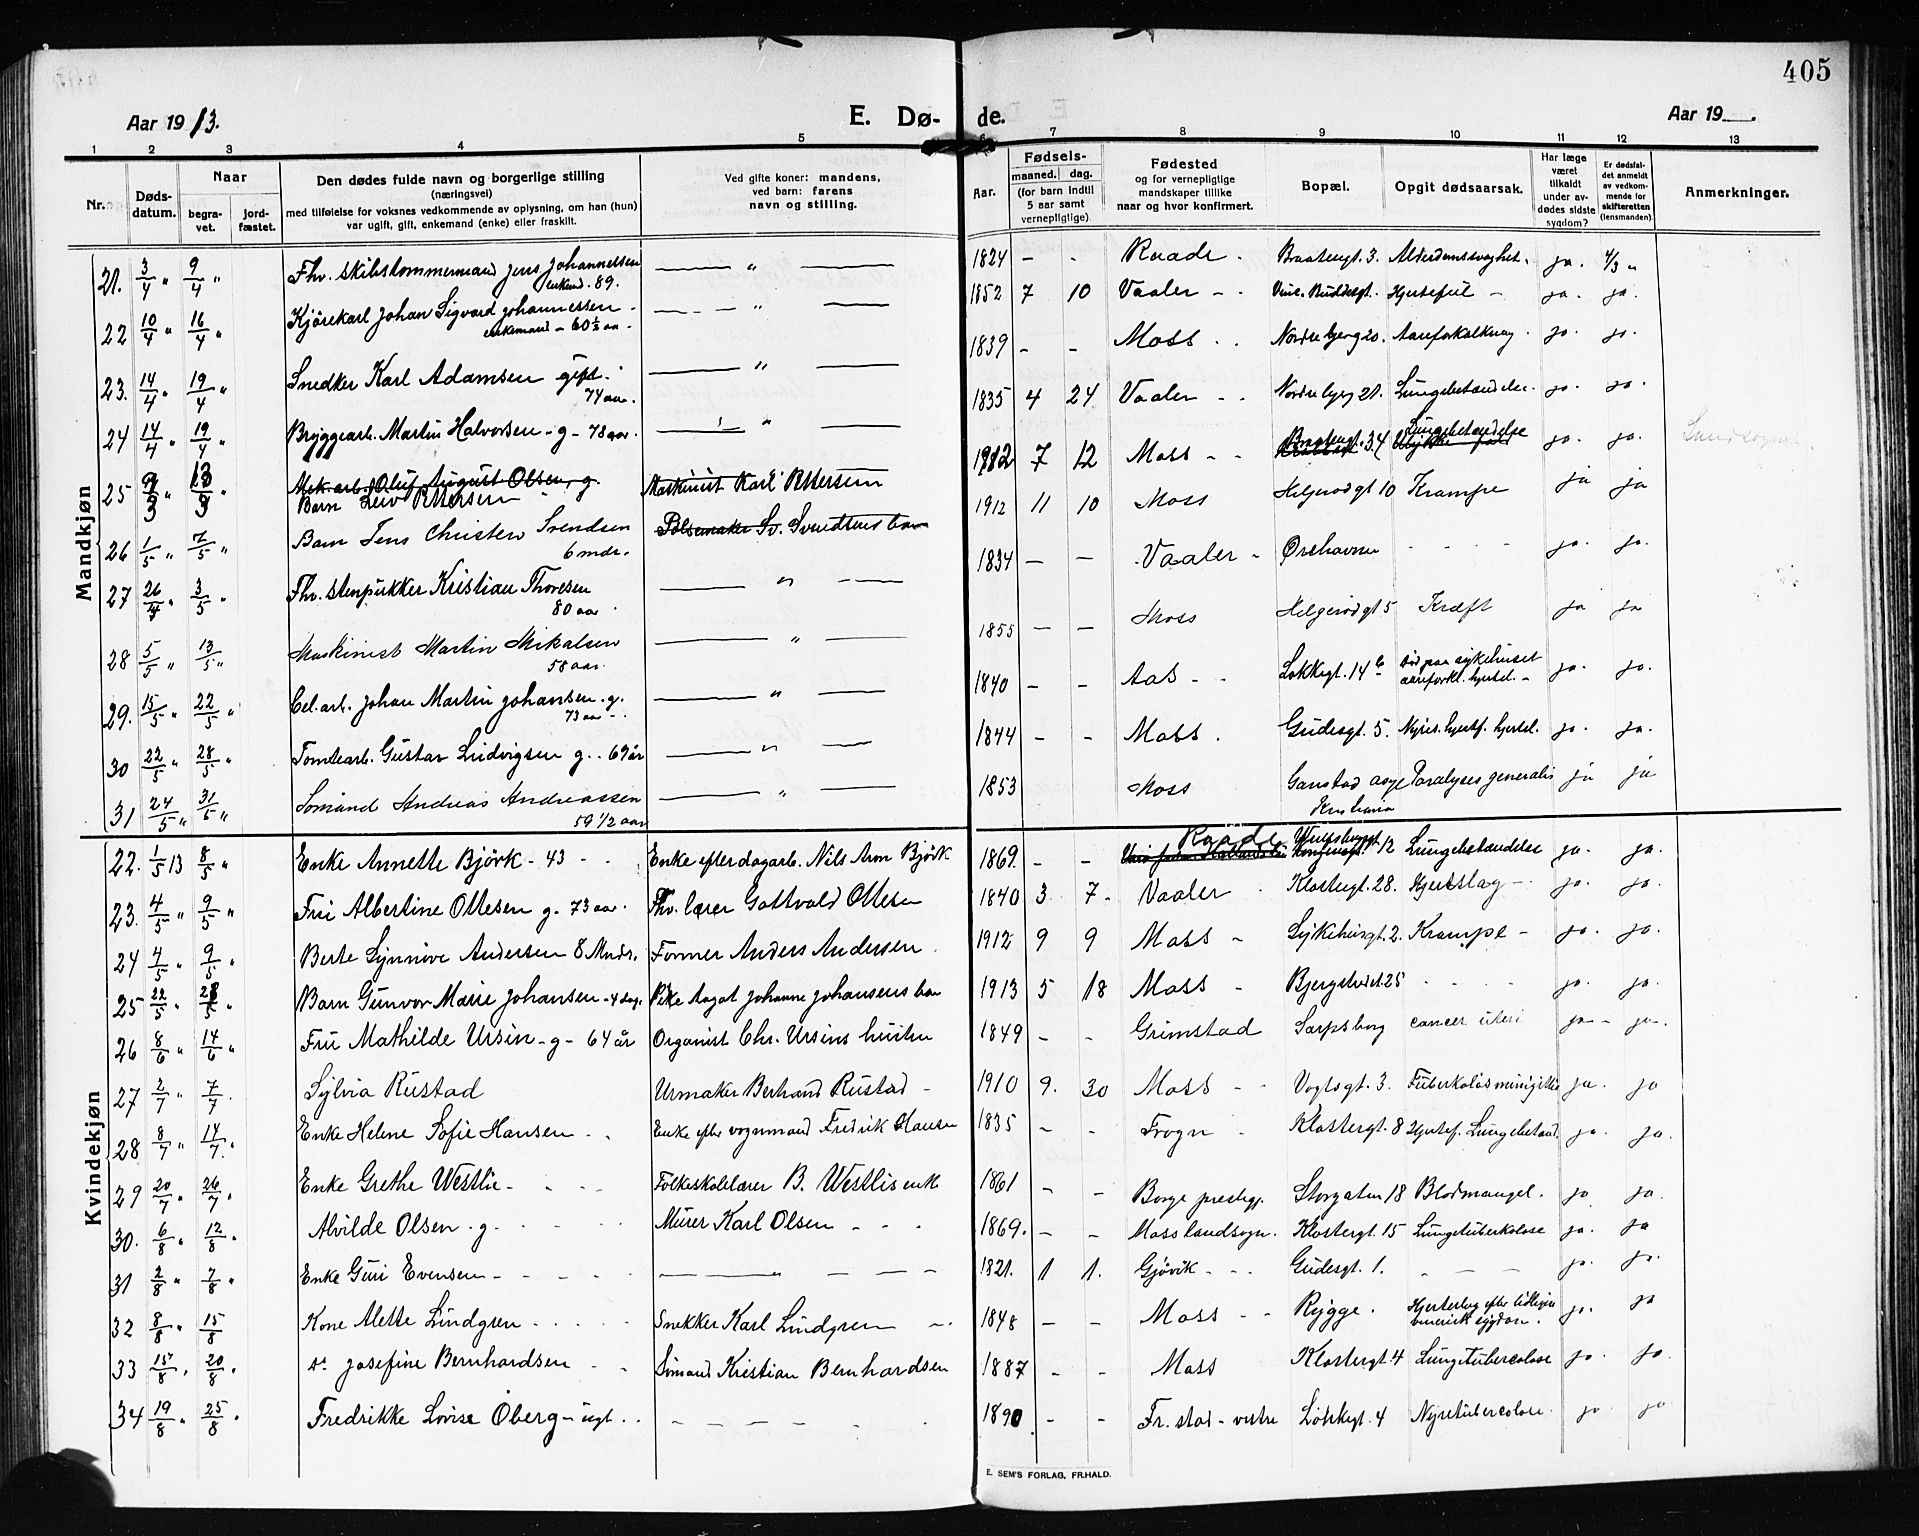 405
Aar 1913.
E. Dø-
de.
Aar 19
1 2 3 4 5 6 7 8 9 10 11 12 13
Nr.
Døds-
datum.
Naar
begra-
vet.
jord-
fæstet.
Den dødes fulde navn og borgerlige stilling
(næringsvei)
med tilføielse for voksnes vedkommende av oplysning, om han (hun)
var ugift, gift, enkemand (enke) eller fraskilt.
Ved gifte koner: mandens,
ved barn: farens
navn og stilling.
Aar.
Fødsels-
maaned. dag.
(for barn indtil
5 aar samt
vernepligtige).
Fødested
og for vernepligtige
mandskaper tillike
naar og hvor konfirmert.
Bopæl.
Opgit dødsaarsak.
Har læge
været
tilkaldt
under av-
dødes sidste
sygdom?
Er dødsfal-
det anmeldt
av vedkom-
mende for
skifteretten
(lensmanden)
Anmerkninger.
Mandkjøn
21. 3/4 " 9/4 " Fhv. skibstømmermand Jens Johannessen enkemd. 89. — " — 1824 - - Raade. Braatengt. 3. Alderdomssvaghet. ja. 4/3 "
22 10/4 " 16/4 " Kjørekarl Johan Sigvard Johannessen - enkemand - 60 ½ aa. — " — 1852 7 10 Vaaler - - Vinc. Buddesgt. Hjertefeil - ja. ja.
23. 14/4 " 19/4 " Snedker Karl Adamsen gift. 74 aar. — " — 1839 - - Moss . . Nordre bjerg 20. Aareforkalkning ja. ja.
24 14/4 " 19/4 " Bryggearb. Martin Halvorsen - g - 78 aar. — " — 1835 4 24 Vaaler - - Nordre bjerg 21. Lungebetændelse. ja. ja.
25 9/3 " 13/3 " Mek.arb. Oluf August Olsen, g. Barn Leiv Pettersen Maskinist Karl Pettersen 1912 7 12 Moss - - Braatengt. 34 Lungebetændelse ja. ja.
26 1/5 " 7/5 " Barn Jens Christen Svendsen 6 mdr. Pølsemaker Sv. Svendsens barn 1912 11 10 Moss Helgerødgt 10 Krampe ja ja
27 26/4 " 3/5 " Fhv. stenpukker Kristian Thoresen 80 aar. — " — 1834 - - Vaaler - Ørehavna - - - - ja. ja.
28 5/5 " 13/5 " Maskinist Martin Mikalsen 58 aar. — " — 1855 - - Moss Helgerødgt 5 Kræft ja ja
29. 15/5 " 22/5 " Cel.arb. Johan Martin Johansen. g. 73 aar - . — " — 1840 - - Aas - - Løkkegt. 14 b død paa sykehuset aareforkl. hjertel. - ja. ja.
30 22/5 " 28/5 " Tomtearb. Gustav Ludvigsen g. . 69 år — " — 1844 - - Moss . Gudesgt. 5. Nyres. hjertf. hjertel. ja. ja.
31 24/5 " 31/5 " Sømand Andreas Andreassen 59 1/2 aar — " — 1853 Moss Gaustad asyl Kristiania Paralyses generalis ja ja
Kvindekjøn
22. 1/5 13 8/5 " Enke Annette Bjørk - 43 - - Enke efter dagarb. Nils Aron Bjørk 1869. - - Raade 12 Lungebetændelse ja. ja.
23. 4/5 " 9/5 " Fru Albertine Ottesen g. 73 aar. Fhv. lærer Gottvald Ottesen 1840 3 7. Vaaler . Klostergt. 28. Hjerteslag - ja. ja.
24 4/5 " 9/5 " Berte Synnøve Andersen 8 Mndr. Former Anders Andersen . 1912 9 9 Moss - Sykehusgt. 2. Krampe - ja. ja.
25 22/5 " 28/5 " Barn Gunvor Marie Johansen - 4 dag. Pike Aagot Johanne Johansens barn 1913 5 18 Moss - Bjergskibst. 25 - - - - ja. ja.
26 8/6 " 14/6 " Fru Mathilde Ursin - g - 64 år Organist Chr. Ursins hustru 1849 - - Grimstad Sarpsborg cancer uteri ja - ja-.
27 2/7 " 7/7 . Sylvia Rustad Urmaker Bertrand Rustad - 1910 9. 30 Moss - - Vogtsgt. 3. Tuberkuløs meningitis ja. ja
28 8/7 " 14/7. Enke Helene Sofie Hansen . . Enke efter vognmand Fredrik Hansen 1835 - - Frogn - Klostergt. 8 Hjertef. Lungebetænd. ja. ja.
29 20/7 " 26/7 " Enke Grethe Westlie - . . . Folkeskolelærer B. Westlis enke 1861 - - Borge prestegj. Storgaten 18 Blodmangel. ja ja.
30. 6/8 " 12/8 " Alvilde Olsen . g. . . . . Murer Karl Olsen - - . 1869. - - Moss landsogn. Klostergt. 15 Lungetuberkulose ja. ja
31 2/8 " 7/8 " Enke Guri Evensen - - - - - — " — 1821. 1 1. Gjøvik - . . Gudesgt. 1. - - - ja. ja.
32 8/8 " 15/8 Kone Alette Lindgren . . . . . Snekker Karl Lindgren - . 1848 - - Moss - - Rygge . Hjerteslag efter ja. ja
33 15/8 . 20/8 . do Josefine Bernhardsen - . Sømand Kristian Bernhardsen 1887 - - Moss Klostergt. 4 Lungetuberculose ja. ja.
34 19/8 " 25/8 . Fredrikke Lovise Öberg - ugt . . - - - - - 1890 - - Fr.stad - vestre Løkkegt. 4 Nyretuberculose. ja ja
E. SEM'S FORLAG, FR.HALD.